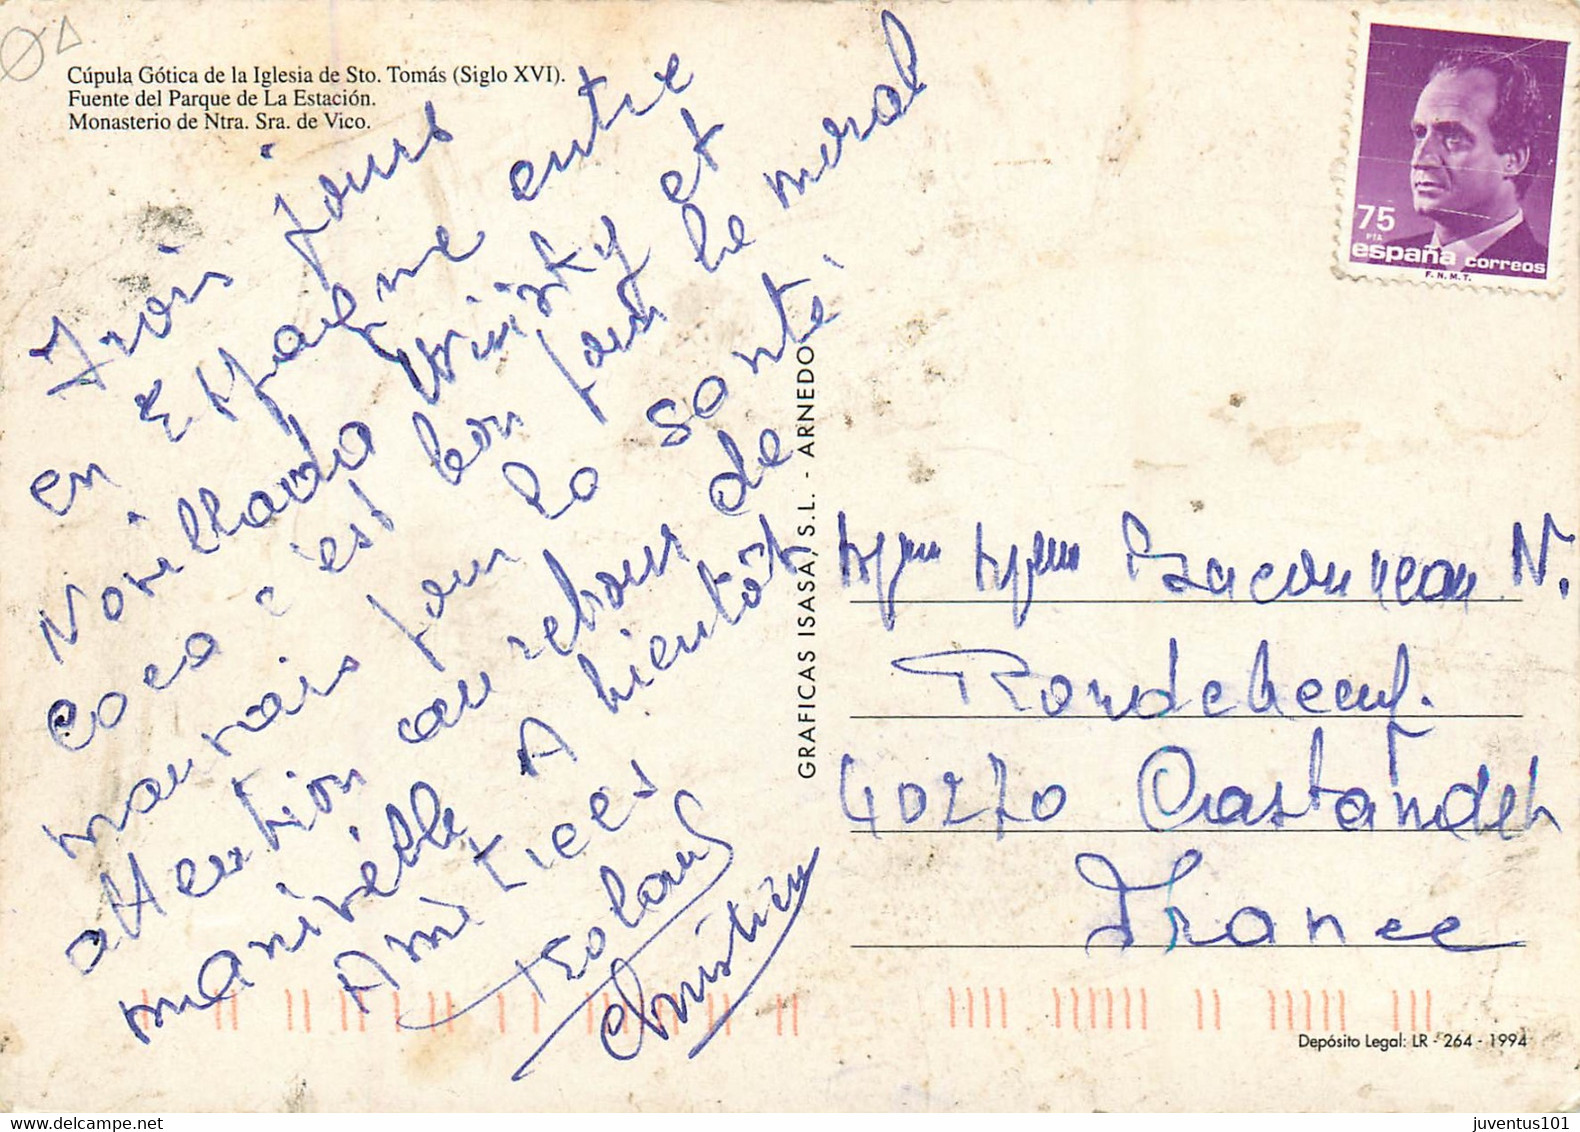 Cúpula Gótica de la Iglesia de Sto. Tomás (Siglo XVI).
Fuente del Parque de La Estación.
Monasterio de Ntra. Sra. de Vico.
Trois jours
en Espagne entre
Novillada Whisky et
coca c'est bon pour le moral
mauvais pour la santé.
attention au retour de
manivelle A bientôt
Amitiés
Roland
Christine
GRAFICAS ISASA, S.L. - ARNEDO
75
PTA
españa correos
F.N.M.T.
N.
40270 Castandet
France
Depósito Legal: LR - 264 - 1994
juventus101